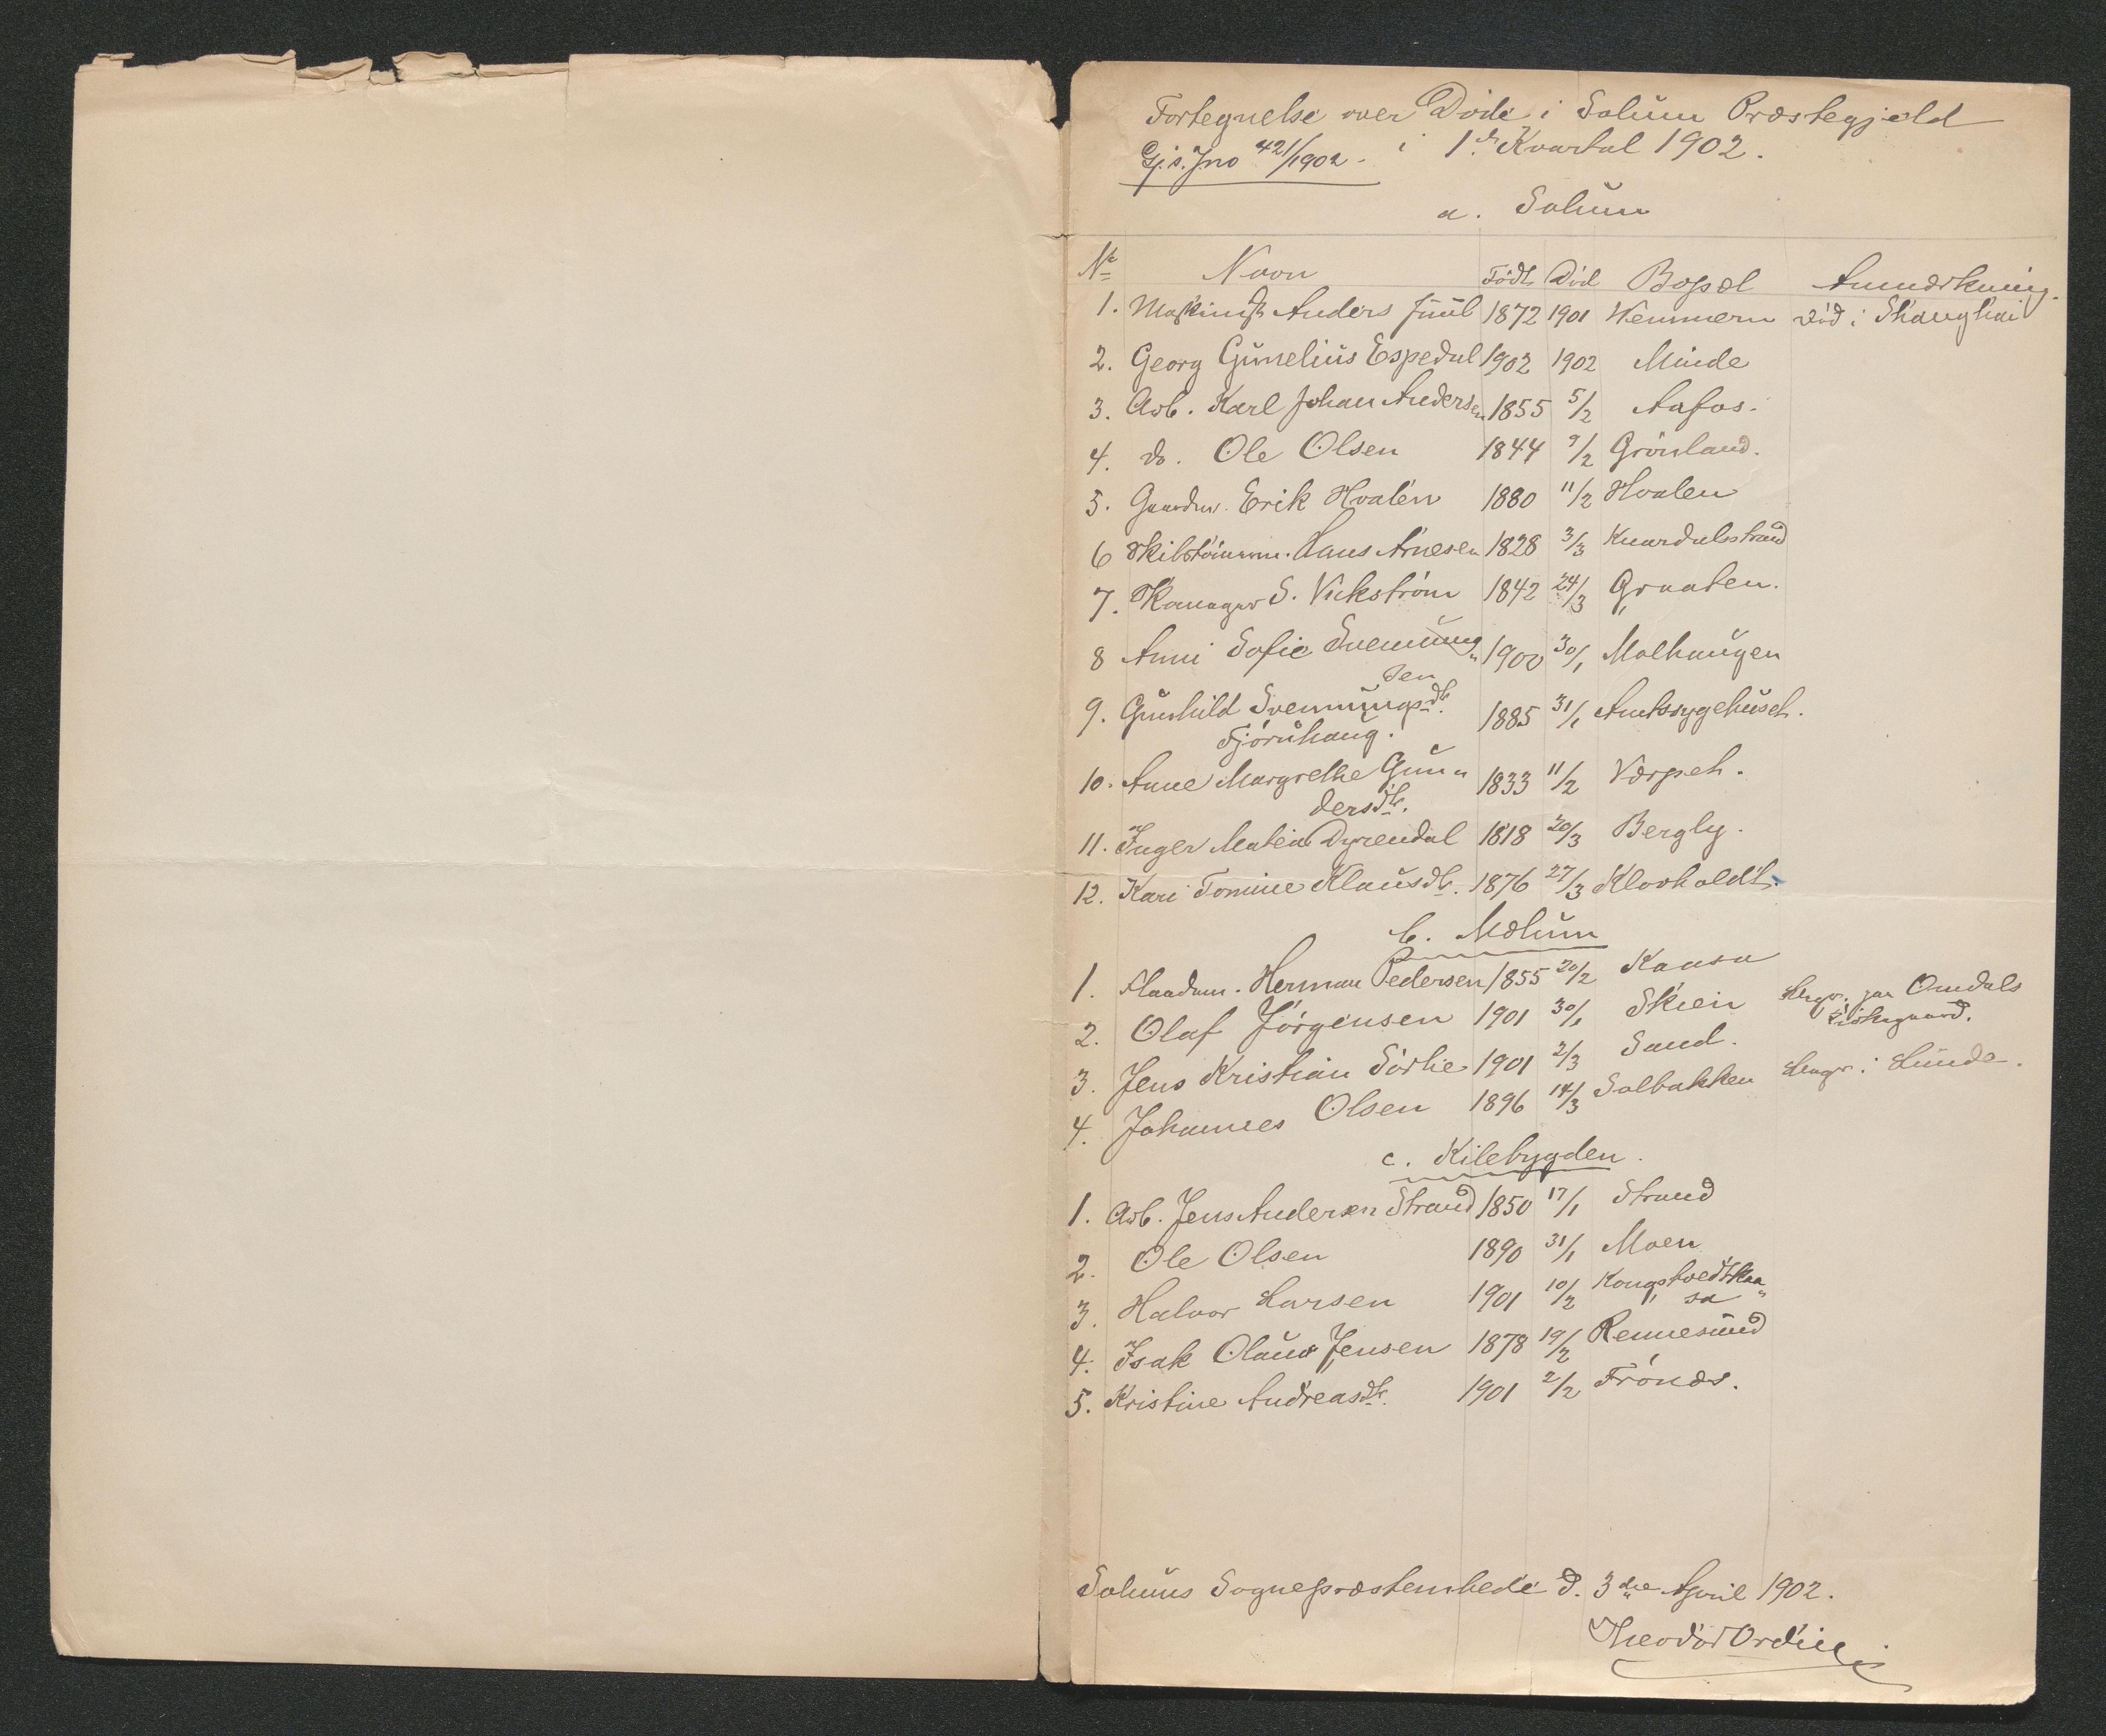 Fortegnelse over Døde i Solum Præstegjeld
Gj.s. Jno 421/1902. i 1ste Kvartal 1902.
a. Solum
No Navn Født Død Bopæl Anmærkning.
1. Maskinist Anders Juul 1872 1901 Wemmern død i Shanghai
2. Georg Gunelius Espedal 1902 1902 Minde
3. Arb. Karl Johan Andersen 1855 5/2 Aafos.
4. do. Ole Olsen 1844 9/2 Grönland.
5. Gaardm. Erik Hvalen 1880 11/2 Hvalen
6 Skibstömmm. Hans Arnesen 1828 3/3 Knardalsstrand
7. S. Vickström 1842 24/3 Graaten.
8 Anni Sofie Svenung- 1900 30/1 Molhaugen
sen
9. Gunhild Svennungsdtr. 1885 31/1 Amtssygehuset.
Fjöruhaug.
10. Anne Margrethe Gun- 1833 11/2 Værpet.
dersdtr.
11. Inger Matea Dyrendal 1818 20/3 Bergly.
12. Kari Tomine Klausdtr. 1876 27/3 Klovholdt.
b. Mælum
1. Flaadm. Herman Pedersen 1855 20/2 Kaasa
2. Olaf Jörgensen 1901 30/1 Skien Begr. paa Omdals
Kirkegaard.
3. Jens Kristian Sörlie 1901 2/3 Sand.
4. Johannes Olsen 1896 14/3 Solbakken Begr. i Lunde.
c. Kilebygden.
1. Arb. Jens Andersen Strand 1850 17/1 Strand
2. Ole Olsen 1890 31/1 Moen
3. Halvor Larsen 1901 10/2 Kongstvedtkaa-
sa
4. Isak Olaus Jensen 1878 19/2 Rennesund
5. Kristine Andreasdtr. 1901 2/2 Frönæs.
Solums Sognepræstembede d. 3die April 1902.
Theodor Ording